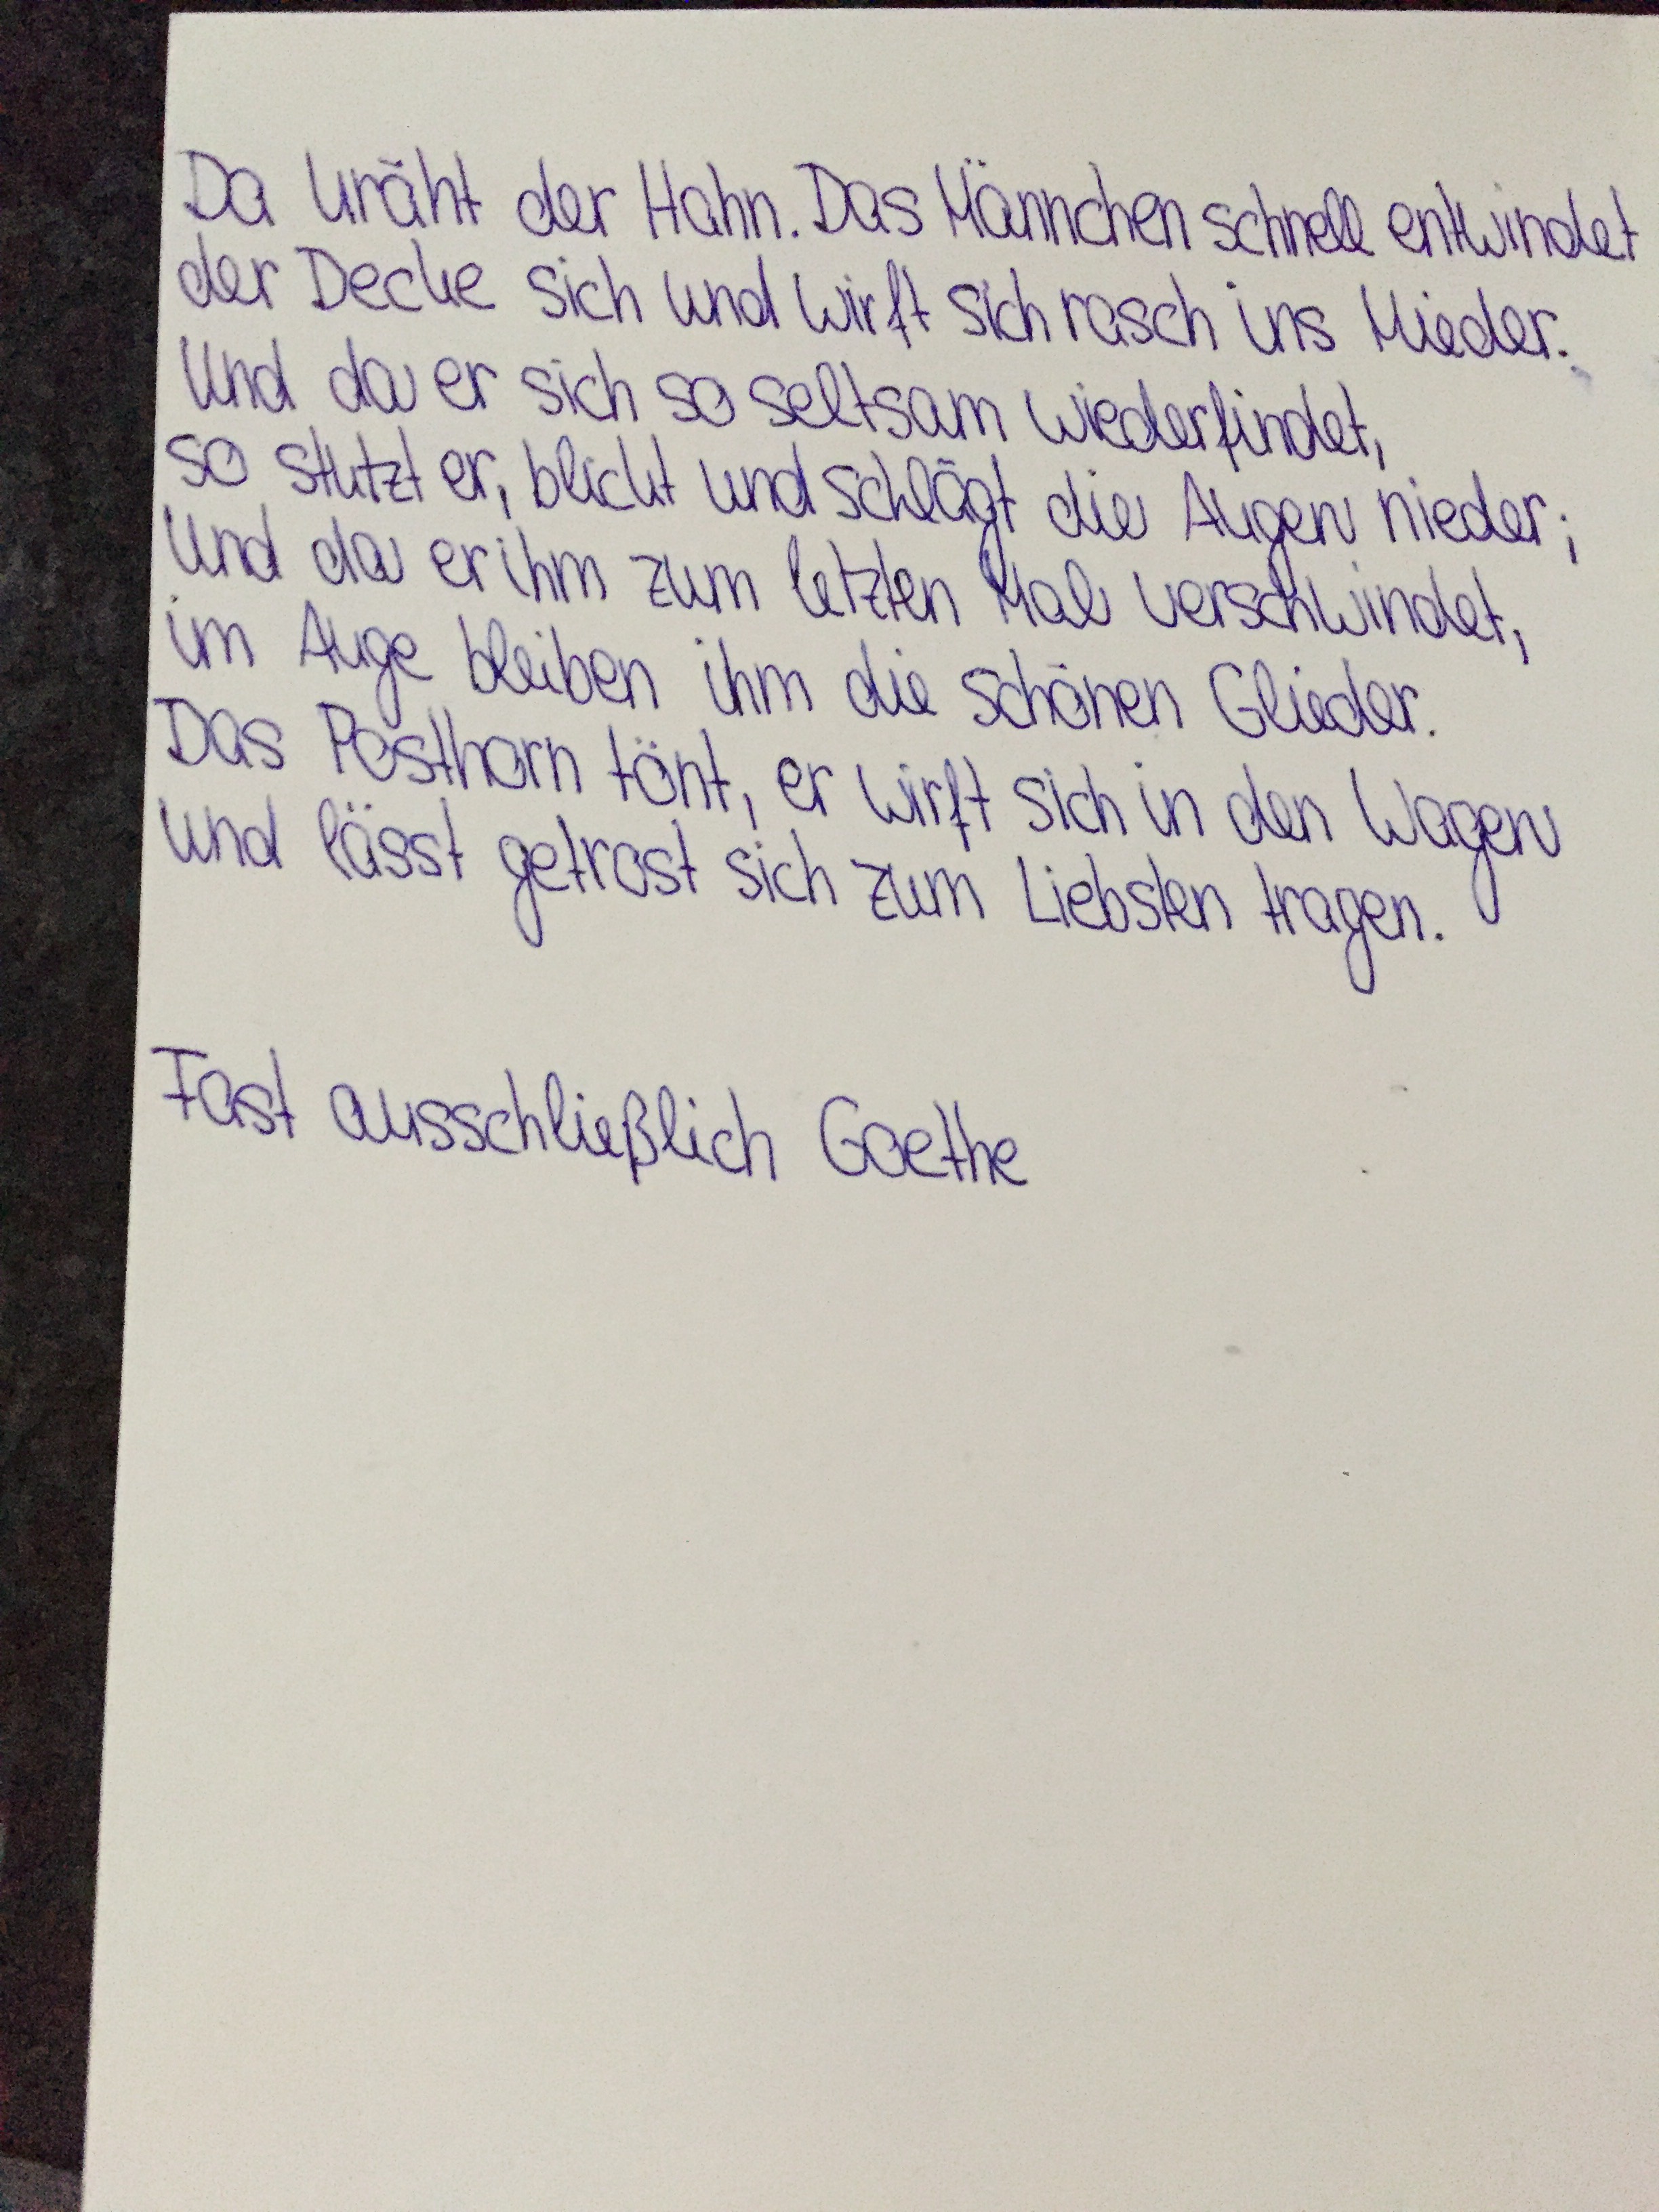 Da kräht der Hahn. Das Männchen schnell entwindet
der Decke sich und wirft sich rasch ins Mieder.
Und da er sich so seltsam wiederfindet,
so stutzt er, blickt und schlägt die Augen nieder;
Und da er ihm zum letzten Mal verschwindet,
im Auge bleiben ihm die schönen Glieder.
Das Posthorn tönt, er wirft sich in den Wagen
und lässt getrost sich zum Liebsten tragen.
Fast ausschließlich Goethe